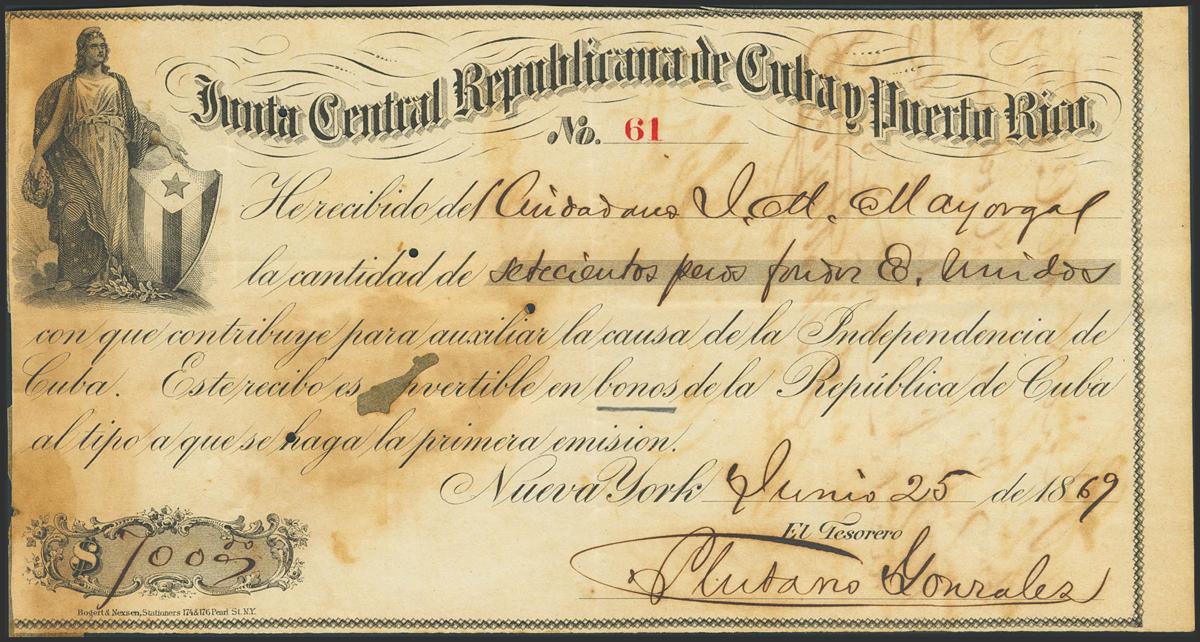 Junta Central Republicana de Cuba y Puerto Rico.
No. 61
He recibido del Ciudadano J. M. Mayorga
la cantidad de setecientos pesos fondos E. Unidos
con que contribuye para auxiliar la causa de la Independencia de
Cuba. Este recibo es nvertible en bonos de la República de Cuba
al tipo a que se haga la primera emision.
Nueva York Junio 25 de 1869
El Tesorero
Gonzales
$ 700 00
Bogert & Nexsen, Stationers 174 & 176 Pearl St. N.Y.